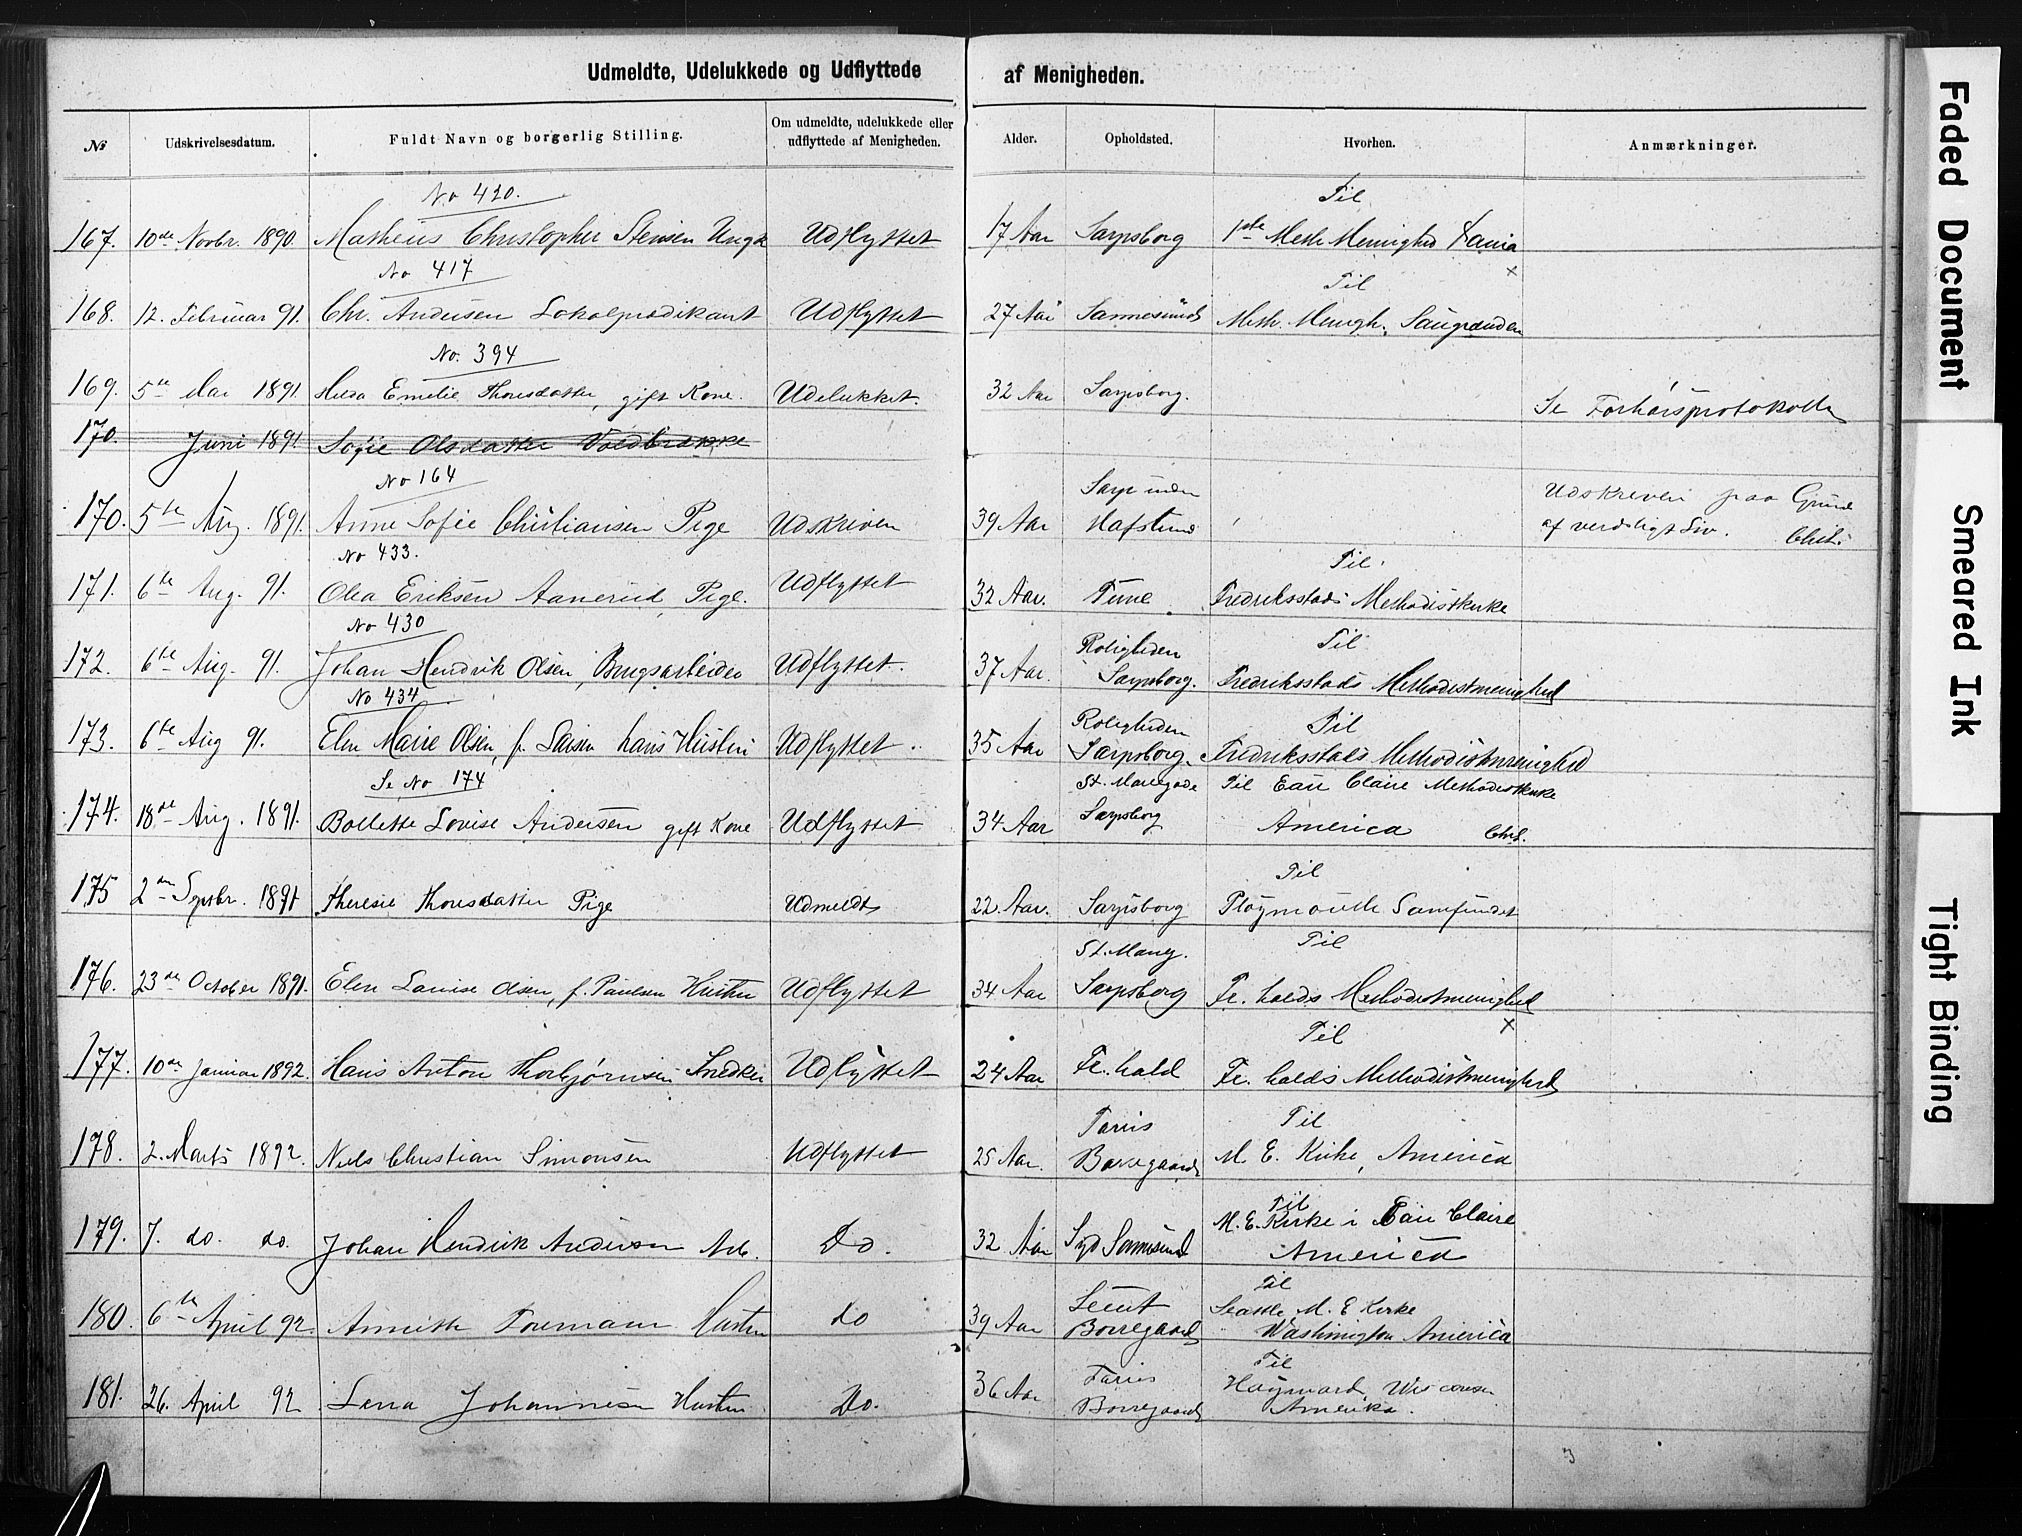 Udmeldte, Udelukkede og Udflyttede af Menigheden.
№ Udskrivelsesdatum. Fuldt Navn og borgerlig Stilling. Om udmeldte, udelukkede eller udflyttede af Menigheden. Alder. Opholdsted. Hvorhen. Anmærkninger.
No 420. Til
167. 10de Novbr. 1890. Matheus Christopher Stensen Udflyttet 17 Aar Sarpsborg 1ste Meth Menighed
No 417 Til x
168. 12. Februar 91. Chr. Andersen Lokalprædikant Udflyttet 27 Aar Sannesund Meth. Menigh.
No. 394
169. 5te Mai 1891 Hilda Emelie Thoresdatter, gift Kone. Udelukket. 32 Aar Sarpsborg. Se Forhørsprotokollen
170. Juni 1891. Sofie Olsdatter
No 164 Sarp under Udskreven paa Grund
170. 5te Aug. 1891. Anne Sofie Christiansen Pige Udskreven 39 Aar Hafslund af verdsligt Liv. Chrst.
No 433. Til.
171. 6te Aug. 91. Olea Eriksen Aanerud, Pige. Udflyttet 32 Aar. Tune Fredriksstads Methodistkirke
No 430 Roligheden Til
172. 6te Aug. 91. Johan Hendrik Olsen, Brugsarbeider Udflyttet. 37 Aar. Sarpsborg. Fredriksstads Methodistmenighed
No 434 Roligheden Til
173. 6te Aug 91. Elen Marie Olsen, f. Larsen hans Hustru Udflyttet. 35 Aar Sarpsborg. Fredriksstads Methodistmenighed
Se No 174 St. Mariegade Til Eau Claire Methodistkirke
174. 18de Aug. 1891. Bollette Lovise Andersen gift Kone Udflyttet 34 Aar Sarpsborg America Chrst.
Til
175 2den Septbr. 1891 Theresie Thoresdatter Pige Udmeldt 22. Aar. Sarpsborg Ploymouth Samfundet
St. Marieg. Til
176. 23de October 1891. Elen Lovise Olsen, f. Paulsen Hustru Udflyttet 34 Aar Sarpsborg Fr. halds Methodistmenighed
Til x
177. 10de Januar 1892. Hans Anton Thorbjørnsen Snedker Udflyttet 24 Aar Fr. hald Fr. halds Methodistmenighed
Til
178. 2. Marts 1892. Niels Christian Simonsen Udflyttet 25 Aar. Borregaard M. E. Kirke, America
Til
M. E. Kirke i Eau Claire
179. 7. do. do. Johan Hendrik Andersen Arb. Do. 32 Aar Syd Sannesund America
Til
Seattle M. E Kirke
180. 6te April 92. Annette Foremann Hustru do 39 Aar Borregaard Washington America
Til
181. 26. April 92 Lena Johannesen Hustru Do. 36 Aar Hayward, Wisconsin
Borregaard Amerika.
Faded Document
Smeared Ink
Tight Binding